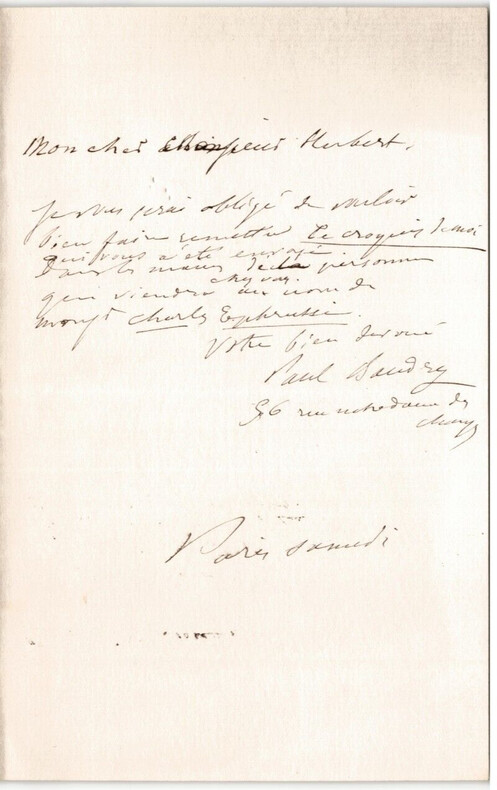 Mon cher Monsieur Herbert,
Je vous serai obligé de vouloir
bien faire remettre le croquis de moi
qui vous a été envoyé
dans les mains de la personne
chez vous
qui viendra au nom de
monsr Charles Ephrussi.
Votre bien dévoué
Paul Baudry
56 rue notre dame des
champs
Paris samedi